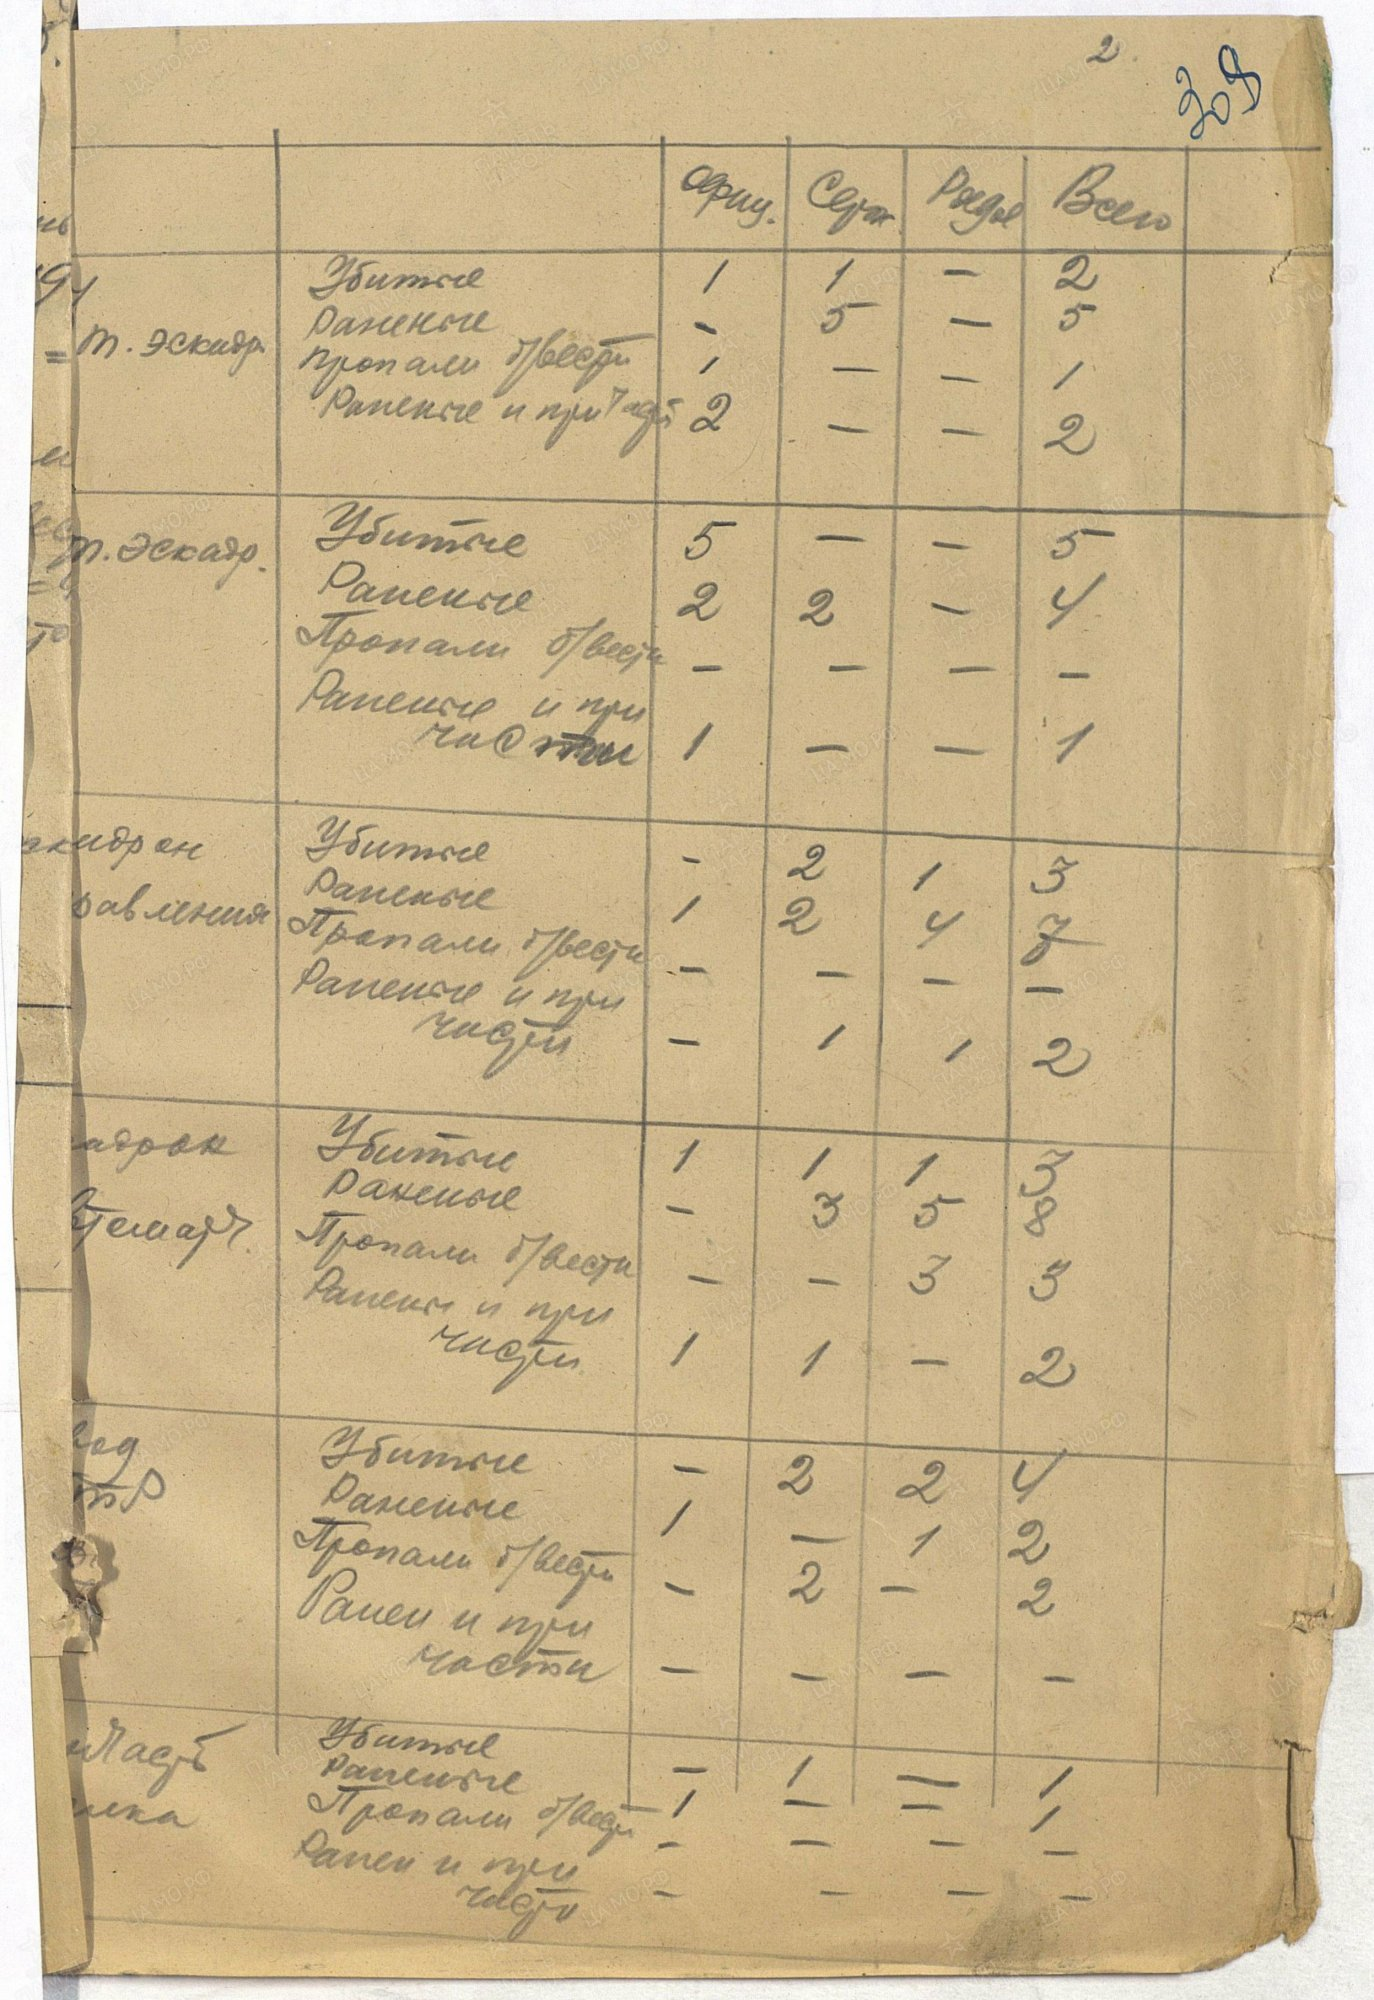 2.
309
Офиц. Серж. Рядов Всего
Убитые 1 1 - 2
т. эскадр. Раненые - 5 - 5
пропали б/вести 1 - - 1
Раненые и при части 2 - - 2
т. эскадр. Убитые 5 - - 5
Раненые 2 2 - 4
Пропали б/вести - - - -
Раненые и при
части 1 - - 1
эскадрон Убитые - 2 1 3
равления Раненые 1 2 4 7
Пропали б/вести - - - -
Раненые и при
части - 1 1 2
адрон Убитые 1 1 1 3
Раненые - 3 5 8
Пропали б/вести - - 3 3
Ранены и при
части 1 1 - 2
вод Убитые - 2 2 4
тР Раненые 1 - 1 2
Пропали б/вести - 2 - 2
Ранен и при
части - - - -
Часть Убитые - 1 - 1
лка Раненые 1 - - 1
Пропали б/вести - - - -
Ранен и при
части - - - -